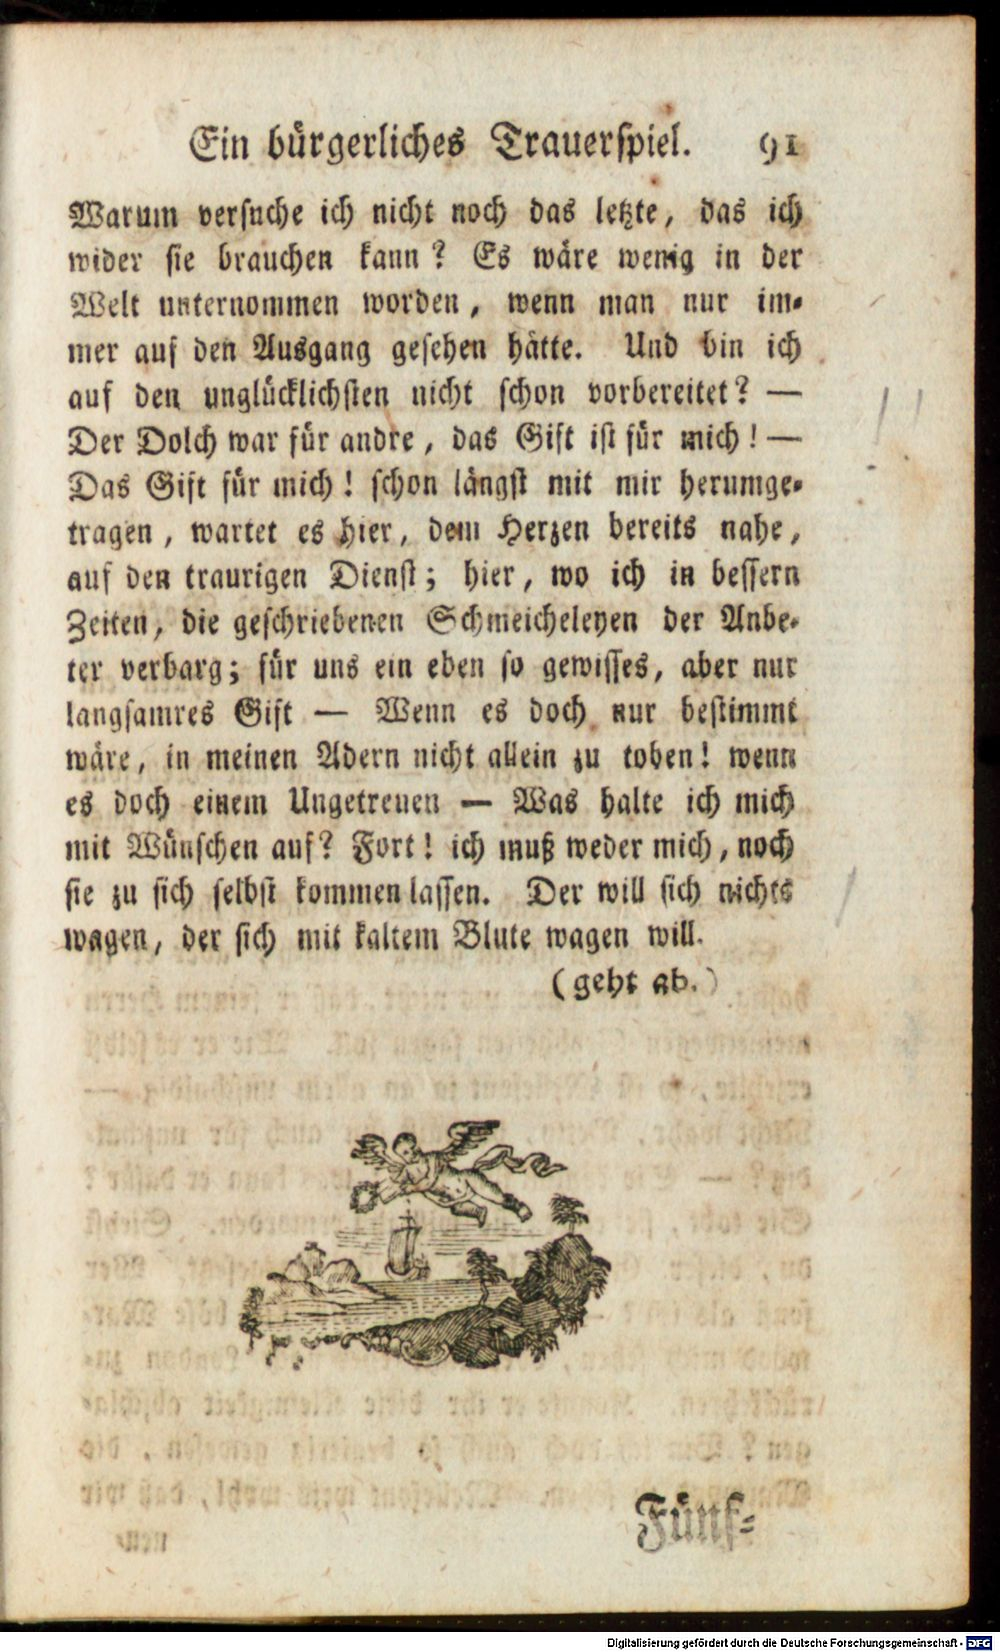 Ein bürgerliches Trauerspiel. 91
Warum versuche ich nicht noch das letzte, das ich
wider sie brauchen kann? Es wäre wenig in der
Welt unternommen worden, wenn man nur im-
mer auf den Ausgang gesehen hätte. Und bin ich
auf den unglücklichsten nicht schon vorbereitet? —
Der Dolch war für andre, das Gift ist für mich! —
Das Gift für mich! schon längst mit mir herumge-
tragen, wartet es hier, dem Herzen bereits nahe,
auf den traurigen Dienst; hier, wo ich in bessern
Zeiten, die geschriebenen Schmeicheleyen der Anbe-
ter verbarg; für uns ein eben so gewisses, aber nur
langsamres Gift — Wenn es doch nur bestimmt
wäre, in meinen Adern nicht allein zu toben! wenn
es doch einem Ungetreuen — Was halte ich mich
mit Wünschen auf? Fort! ich muß weder mich, noch
sie zu sich selbst kommen lassen. Der will sich nichts
wagen, der sich mit kaltem Blute wagen will.
(geht ab.)
Fünf-
Digitalisierung gefördert durch die Deutsche Forschungsgemeinschaft - DFG